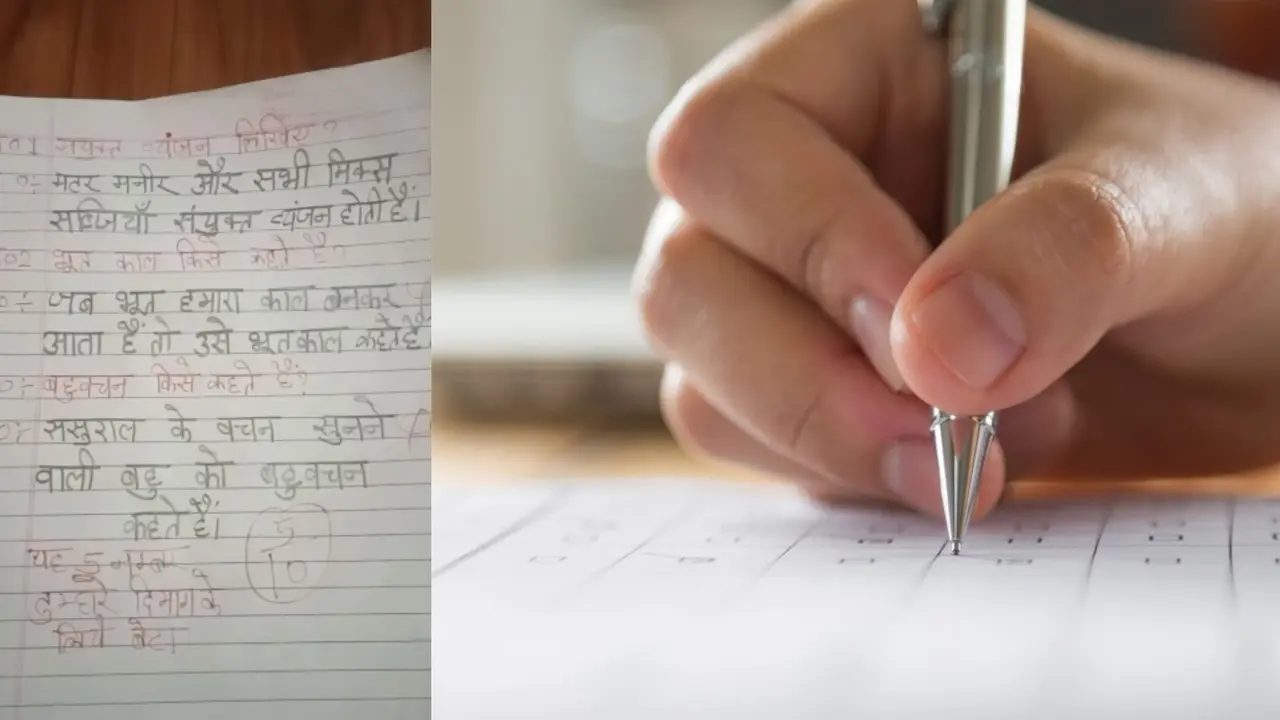 संयुक्त व्यंजन लिखिए?
मटर मनीर और सभी मिक्स
सब्जियाँ संयुक्त व्यंजन होती हैं।
भूत काल किसे कहते है?
जब भूत हमारा काल बनकर
आता हैं तो उसे भूतकाल कहते है
बहुवचन किसे कहते हैं?
ससुराल के वचन सुनने
वाली बहु को बहुवचन
कहते हैं।
5
10
यह 5 नम्बर
तुम्हारे दिमाग के
लिये बेटा